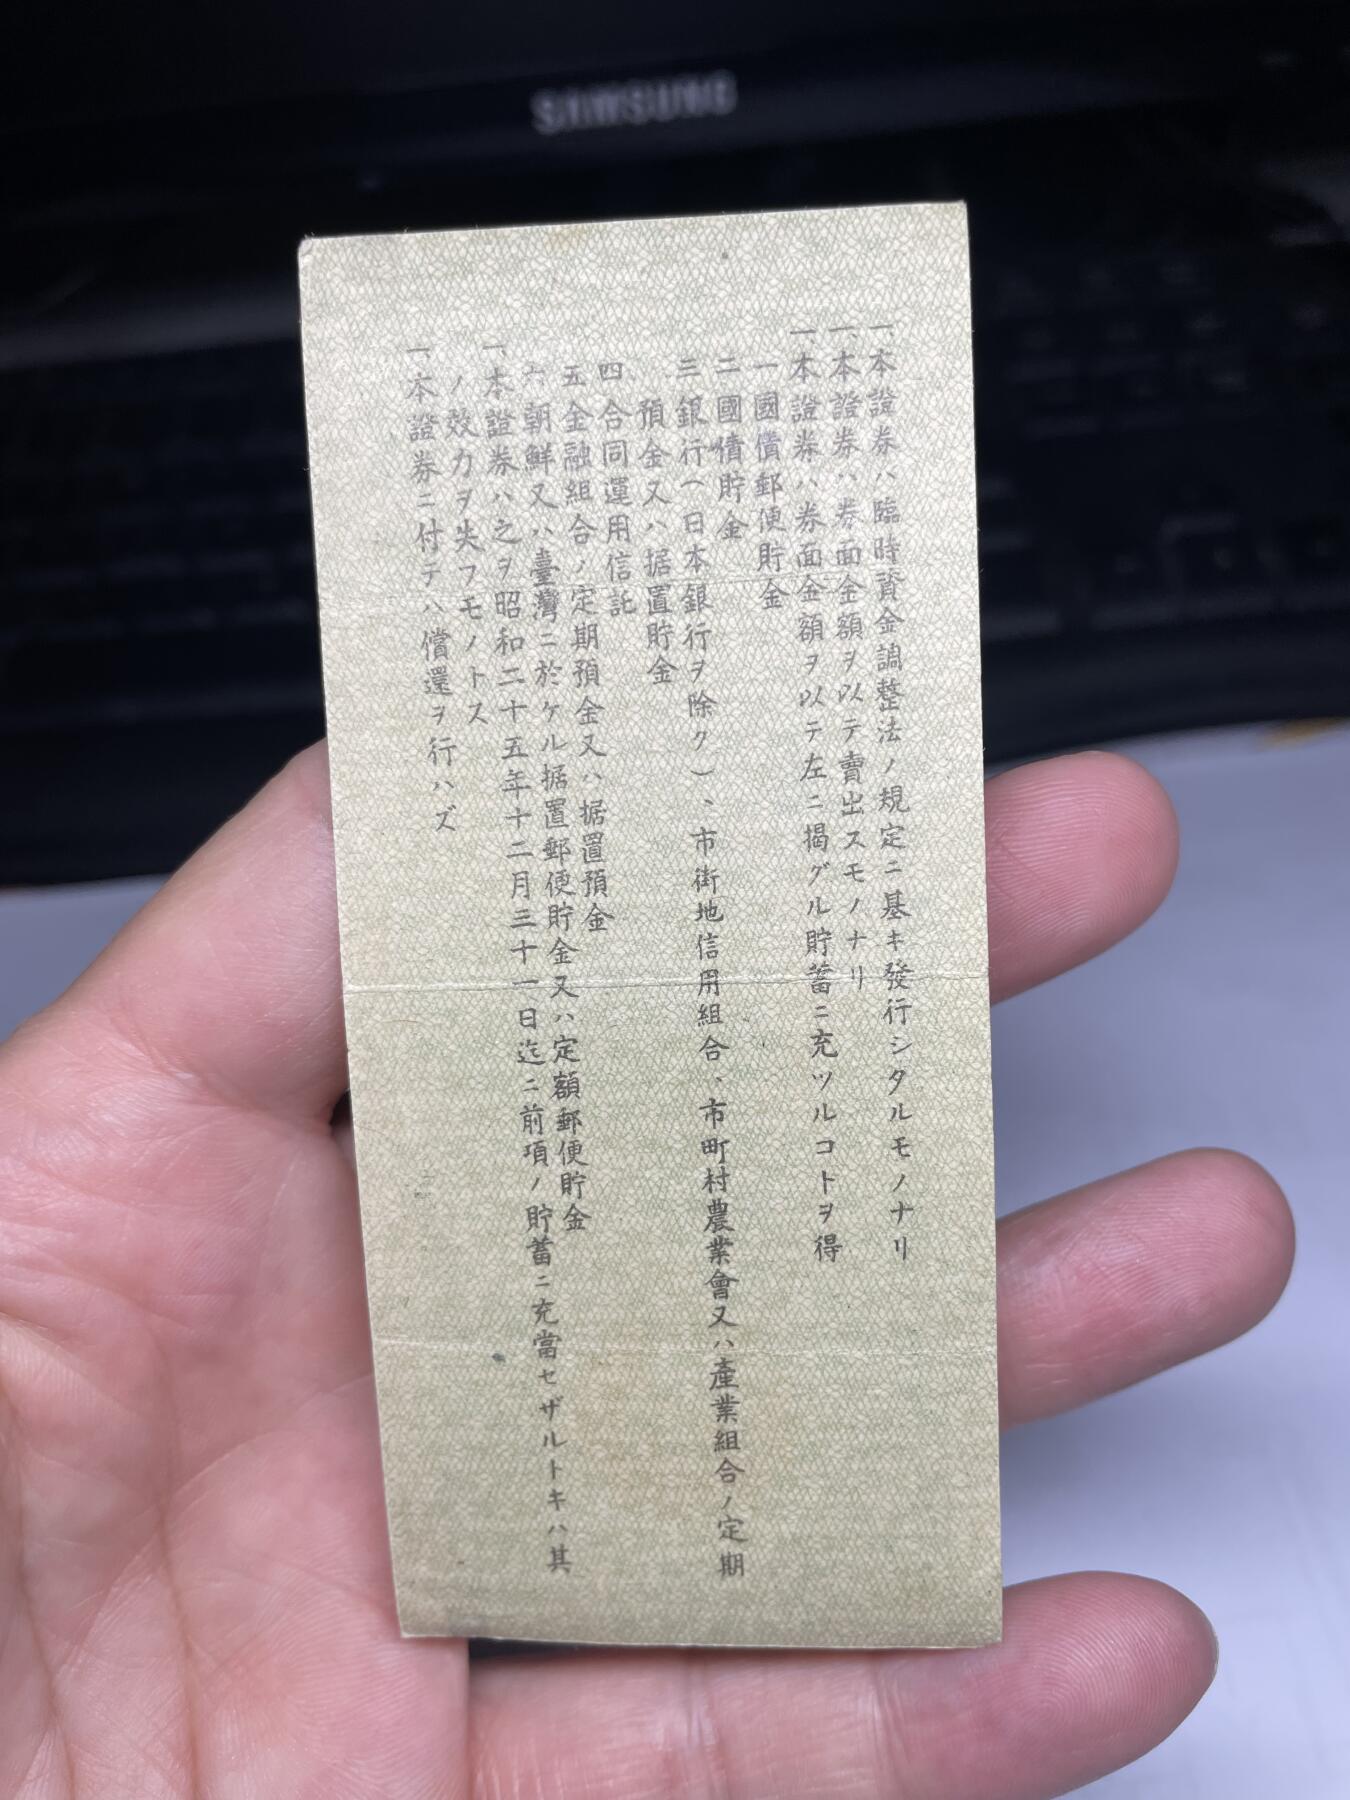 SAMSUNG
一、本證券ハ臨時資金調整法ノ規定ニ基キ發行シタルモノナリ
一、本證券ハ券面金額ヲ以テ賣出スモノナリ
一、本證券ハ券面金額ヲ以テ左ニ揭グル貯蓄ニ充ツルコトヲ得
一國債郵便貯金
二國債貯金
三銀行(日本銀行ヲ除ク)、市街地信用組合、市町村農業會又ハ產業組合ノ定期
預金又ハ据置貯金
四合同運用信託
五金融組合ノ定期預金又ハ据置預金
六朝鮮又ハ臺灣ニ於ケル据置郵便貯金又ハ定額郵便貯金
一、本證券ハ之ヲ昭和二十五年十二月三十一日迄ニ前項ノ貯蓄ニ充當セザルトキハ其
ノ效力ヲ失フモノトス
一、本證券ニ付テハ償還ヲ行ハズ